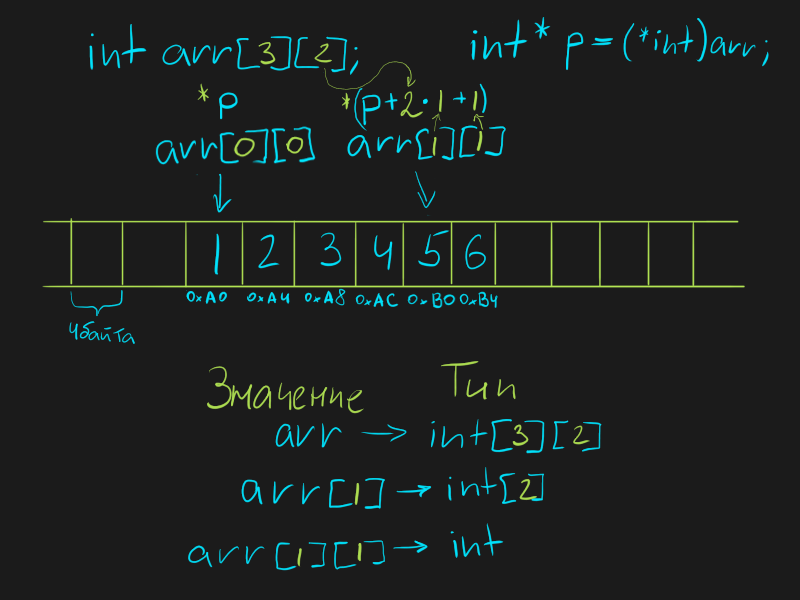 int arr[3][2]; int* p = (*int)arr;
*p *(p+2·1+1)
arr[0][0] arr[1][1]
1 2 3 4 5 6
0xA0 0xA4 0xA8 0xAC 0xB0 0xB4
4байта
Значение Тип
arr → int[3][2]
arr[1] → int[2]
arr[1][1] → int